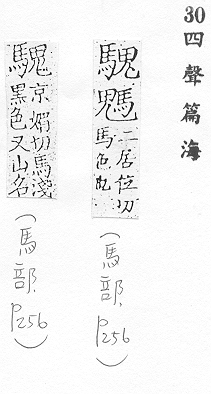 30 四聲篇海
騩
二居位切
馬色
(馬部, P256)
騩
京媚切馬淺
黑色又山名
(馬部, P256)